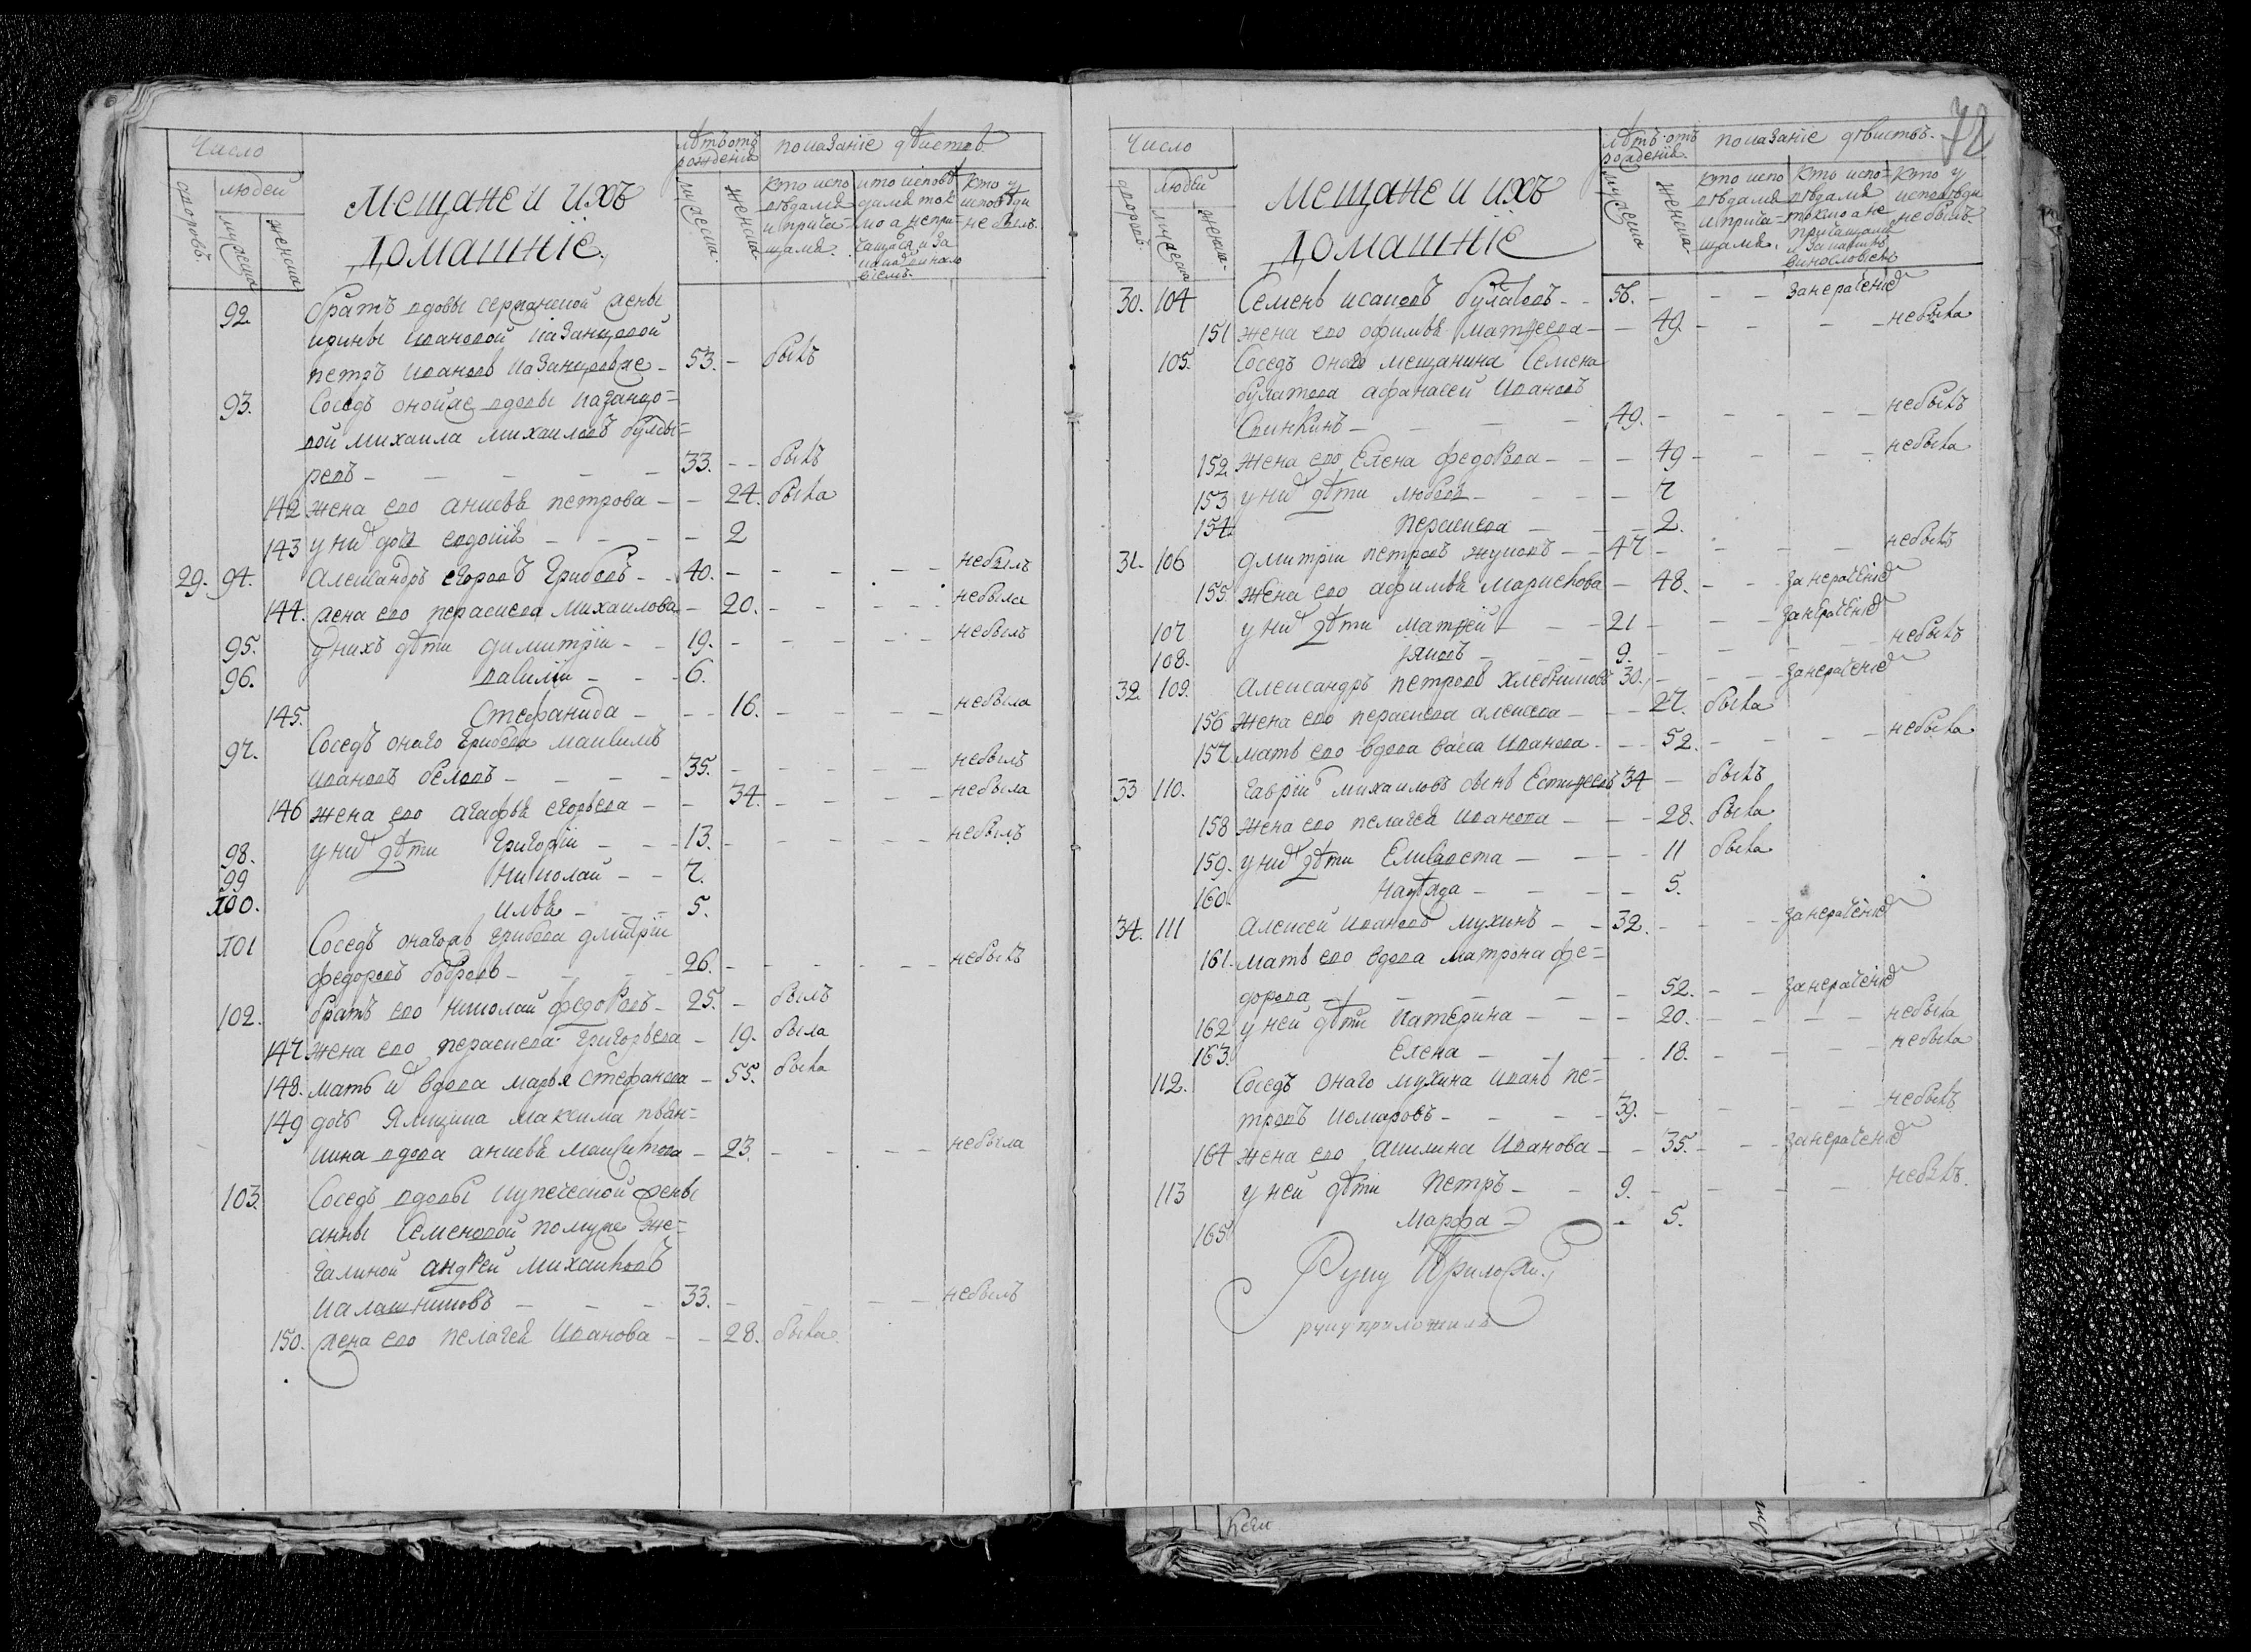 Число
людей
дворовъ.
мужеска
женска
Мещане и ихъ
Домашніе.
лѣтъ отъ
рожденія
мужеска
женска
показаніе дѣйств
кто испо
вѣдался
и прича=
щался.
кто исповѣ
дался ток
мо а непри=
кто у
исповѣди
небылъ.
92. братъ вдовы сержанской жены
ирины Ивановой казанцовой
петръ Ивановъ казанцовже - 53. - былъ
93. Соседъ онойже вдовы казанцо=
вой михаила михаиловъ
ревъ - 33. - - былъ
142 жена его анисья петрова - - 24. была
143 у них дочь евдокія - - 2
29. 94. Александръ егоровъ Грибовъ - 40. - - небылъ
144. жена его пераскева Михаилова - 20. - - небыла
95. у нихъ дѣти димитріи - 19. - - небылъ
96. василіи - - 6.
145. Стефанида - - 16. - - небыла
97. Соседъ онаго Грибова максимъ
ивановъ беловъ - 35. - - небылъ
146 жена его агафья егорьева - - 34. - - небыла
98. у них дѣти Григоріи - - 13. - - небылъ
99 Николай - - 7.
100. илья - - 5.
101 Соседъ онагожъ грибова дмитріи
федоровъ бобровъ - 26. - - небылъ
102. братъ его николай федоровъ - 25. - былъ
147. жена его пераскева Григорьева - 19. была
148. мать их вдова марья стефанова - 55. была
149 дочь Ямщика максима
кина вдова анисья максимова - 23. - - небыла
103. Соседъ вдовы купеческой жены
анны Семеновой помуже
галиной андрей михаиловъ
калашниковъ - - - 33. - - небылъ
150. жена его пелагея Иванова - - 28. была
72
Число
людей
дворовъ.
мужеска
женска.
Мещане и ихъ
Домашніе
лѣтъ отъ
рожденія.
мужеска
женска.
показаніе дѣиствъ.
кто испо
вѣдался
и прича=
щался.
кто испо=
вѣдался
токмо а не
причащался
кто у
исповѣди
небылъ
30. 104 Семенъ исаковъ булатовъ - - 56. - - - занерачение
151 жена его офимья матфеева - - 49. - - небыла
105. Соседъ онаго мещанина Семена
булатова афанасей Ивановъ
Свинкинъ - 49. - - небылъ
152 жена его Елена федорова - - 49 - - небыла
153 у них дѣти любовь - - 7
154. пераскева - - 2.
31. 106 дмитріи петровъ жуковъ - - 47 - - небылъ
155. жена его афимья - 48. - - занерачение
107 у них дѣти матфей - - 21 - - занерачение
108. яковъ - 9. - - небылъ
32 109. Александръ петровъ хлебниковъ 30. - - занерачение
156 жена его пераскева алексеева - - 27. была
157 мать его вдова васса Иванова. - - 52. - - небыла
33 110. Гавріи михаиловъ сынъ 34 - былъ
158 жена его пелагея Иванова - - 28. была
159. у них дѣти Еливавета - - 11 была
160. - - 5.
34. 111 Алексей Ивановъ мухинъ - - 32. - - занерачение
161. мать его вдова матрона фе=
дорова - 52. - - занерачение
162 у ней дѣти катерина - - 20. - - небыла
163. Елена - - 18. - - небыла
112. Соседъ онаго мухина иванъ пе=
тровъ комаровъ - 39. - - небылъ
164 жена его акилина Иванова - - 35. - - занерачение
113 у ней дѣти Петръ - - 9. - - небылъ.
165 Марфа - - 5.
Руку Приложи
руку приложилъ